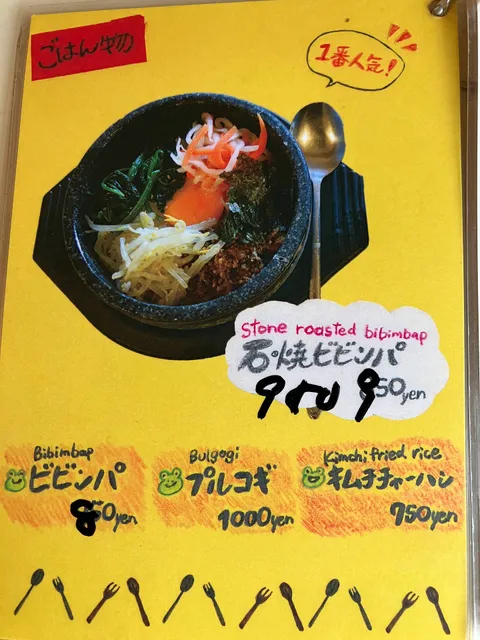 ごはん物
1番人気!
Stone roasted bibimbap
石焼ビビンパ
950 950yen
Bibimbap
ビビンパ
850yen
Bulgogi
プルコギ
1000yen
Kimchi fried rice
キムチチャーハン
750yen